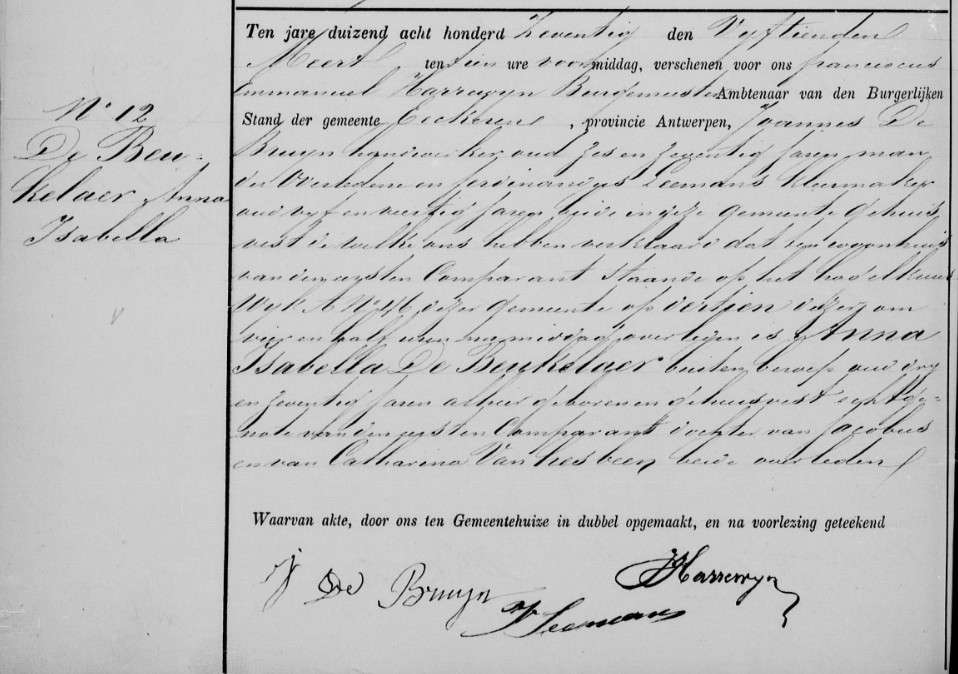 N° 12
De Beu-
kelaer Anna
Isabella
Ten jare duizend acht honderd Zeventig den Vyftienden
Meert ten tien ure voormiddag, verschenen voor ons franciscus
Emmanuel Harrewyn Burgemeester Ambtenaar van den Burgerlijken
Stand der gemeente Eeckeren, provincie Antwerpen, Joannes De
Bruyn handwerker oud zes en zeventig Jaren man
der Overledene en ferdinandus Leemans kleermaker
oud vyf en veertig Jaren beide in deze gemeente gehuis
vest de welke ons hebben verklaard dat ten woonhuis
van den eersten Comparant staande op het
Wyk A N° 46 dezer gemeente op dertien dezer om
vier en half uren namiddag overleden is Anna
Isabella De Beukelaer buiten beroep oud dry
en zeventig Jaren alhier geboren en gehuisvest echtge-
note van den eersten Comparant dochter van Jacobus
en van Catharina Van hesbeen beide overleden
Waarvan akte, door ons ten Gemeentehuize in dubbel opgemaakt, en na voorlezing geteekend
J De Bruyn
Harrewyn
F Leemans